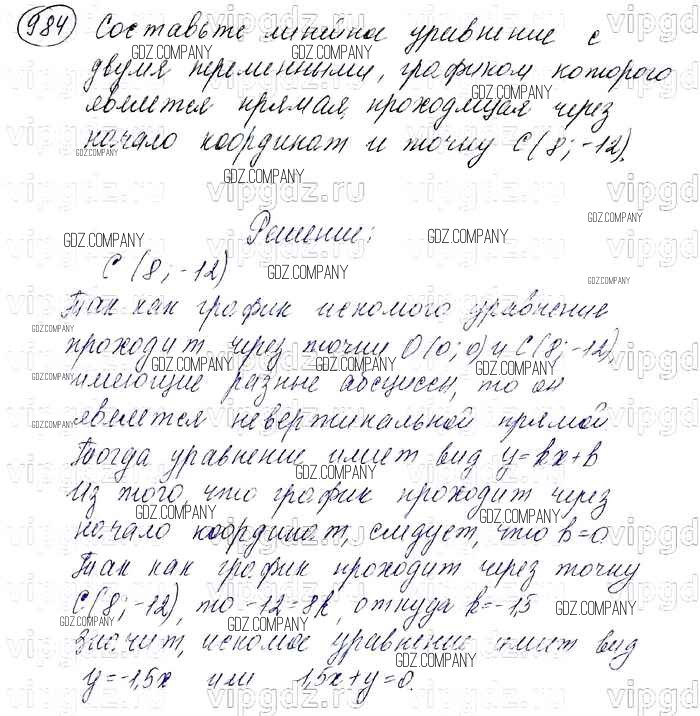 984 Составьте линейное уравнение с
двумя переменными, графиком которого
является прямая, проходящая через
начало координат и точку C(8;-12).
Решение:
C(8;-12)
Так как график искомого уравнение
проходит через точки O(0;0) и C(8;-12),
имеющие разные абсциссы, то он
является невертикальной прямой
Тогда уравнение имеет вид y=kx+b
Из того, что график проходит через
начало координат, следует, что b=0.
Так как график проходит через точку
C(8;-12), то -12=8k, откуда k=-1,5
Значит, искомое уравнение имеет вид
y=-1,5x или 1,5x+y=0.